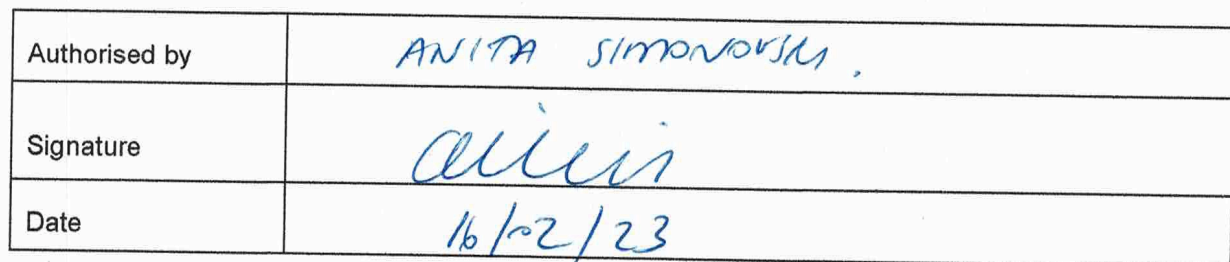 Authorised by ANITA SIMONOVSKI.
Signature
Date 16/02/23